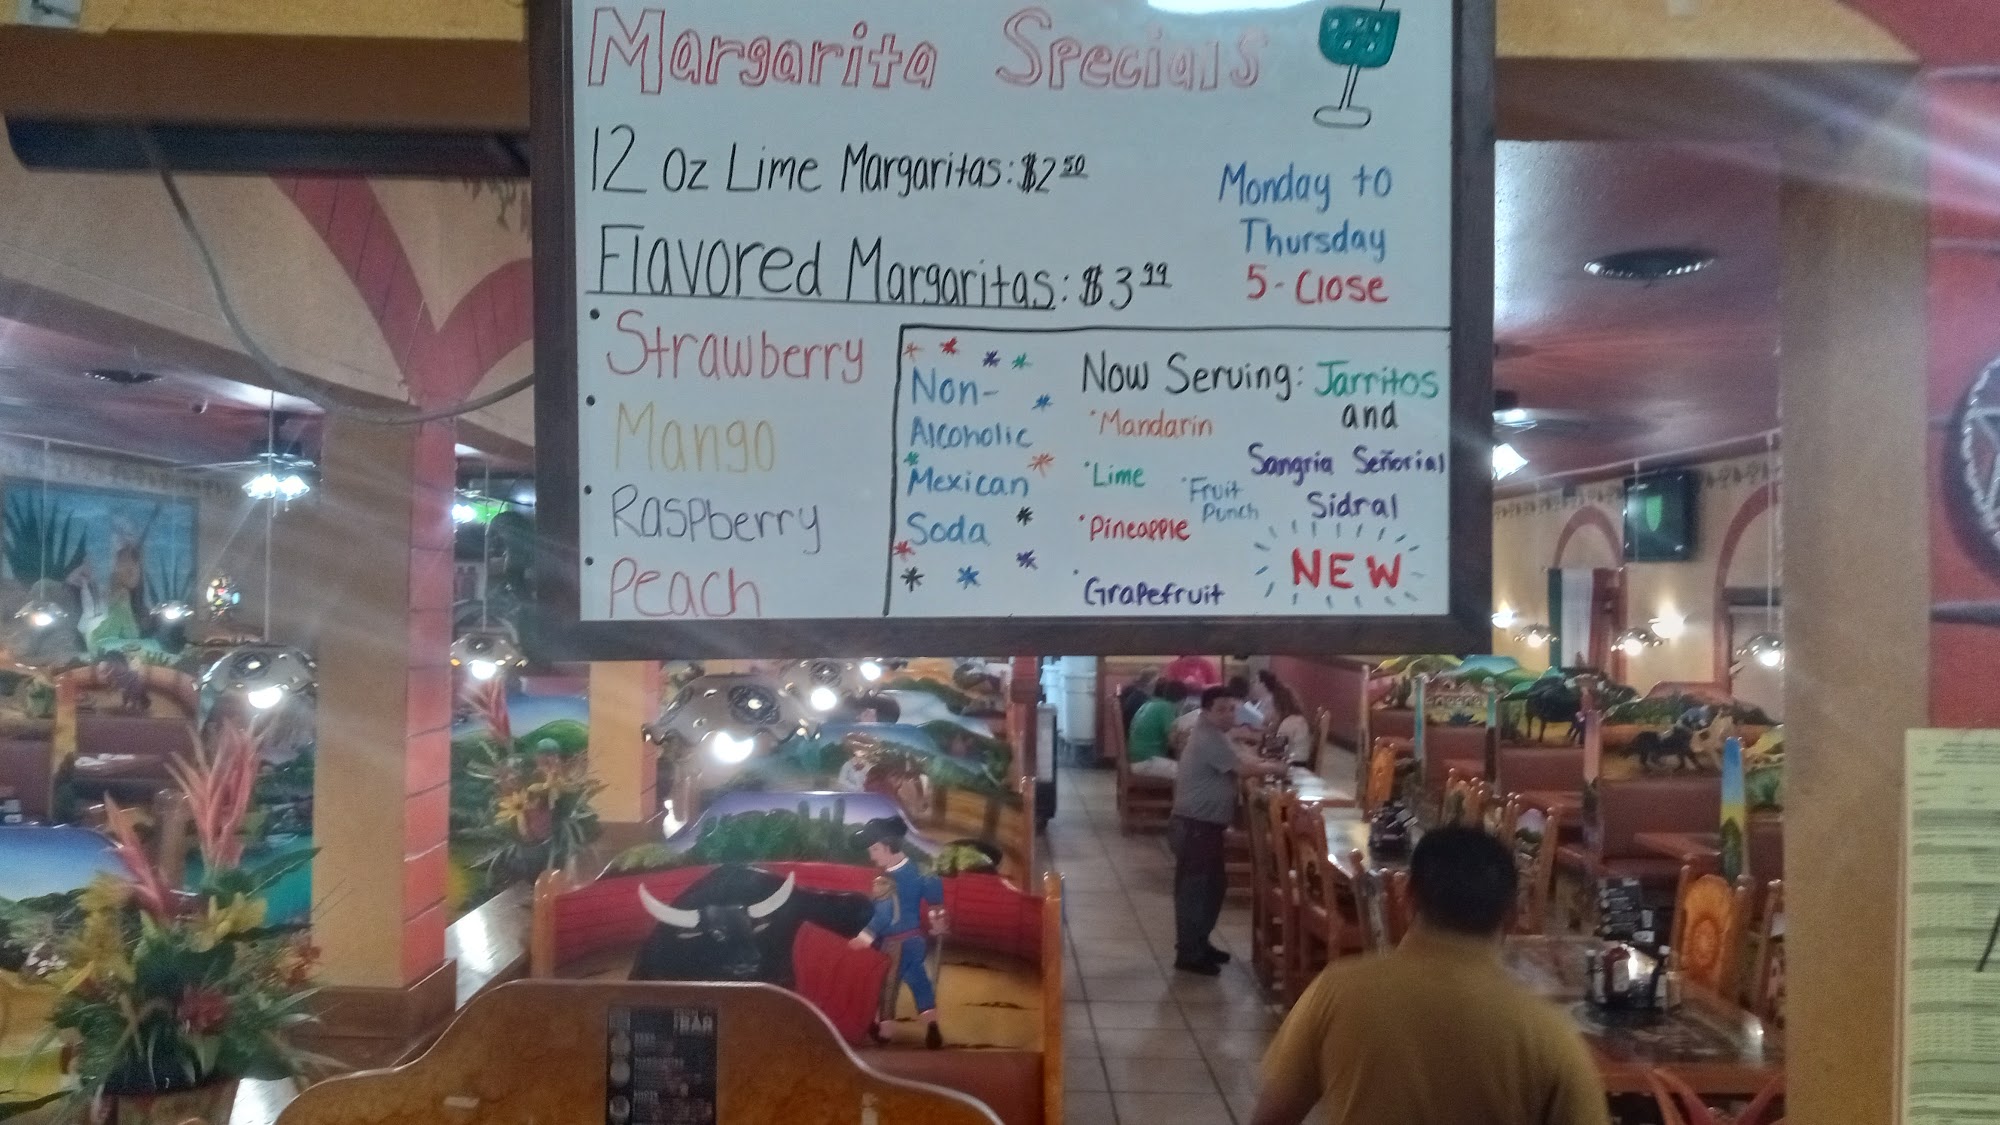 Margarita Specials
12 oz Lime Margaritas: $2 50
Flavored Margaritas: $3 99
Monday to
Thursday
5 - Close
• Strawberry
• Mango
• Raspberry
• Peach
Non-
Alcoholic
Mexican
Soda
Now Serving: Jarritos
and
Sangria Señorial
Sidral
NEW
• Mandarin
• Lime
• Fruit
Punch
• Pineapple
• Grapefruit
BAR